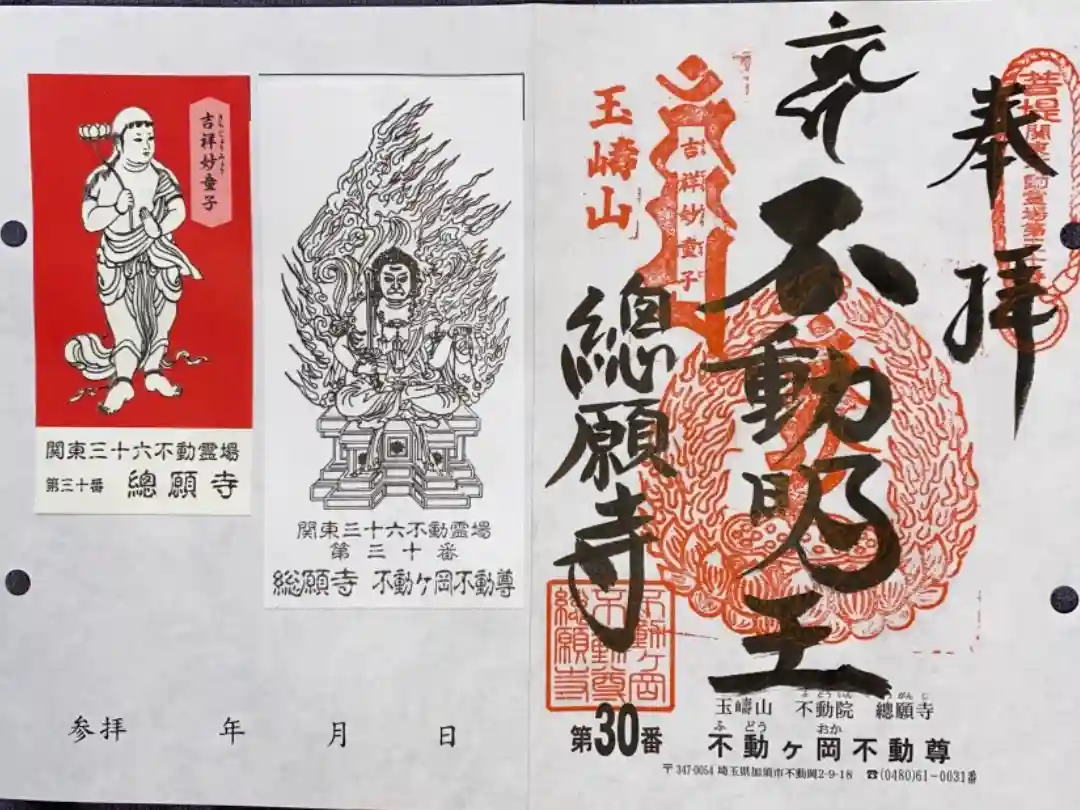 吉祥妙童子
きちじょうみょう
関東三十六不動霊場
第三十番 總願寺
関東三十六不動霊場
第三十番
総願寺 不動ヶ岡不動尊
参拝 年 月 日
奉拝
不動明王
玉嶹山
吉祥妙童子
總願寺
不動ヶ岡
不動尊
総願寺
第30番
ふどういん がんじ
玉嶹山 不動院 總願寺
ふどう おか
不動ヶ岡不動尊
〒347-0054 埼玉県加須市不動岡2-9-18 ☎(0480)61-0031番